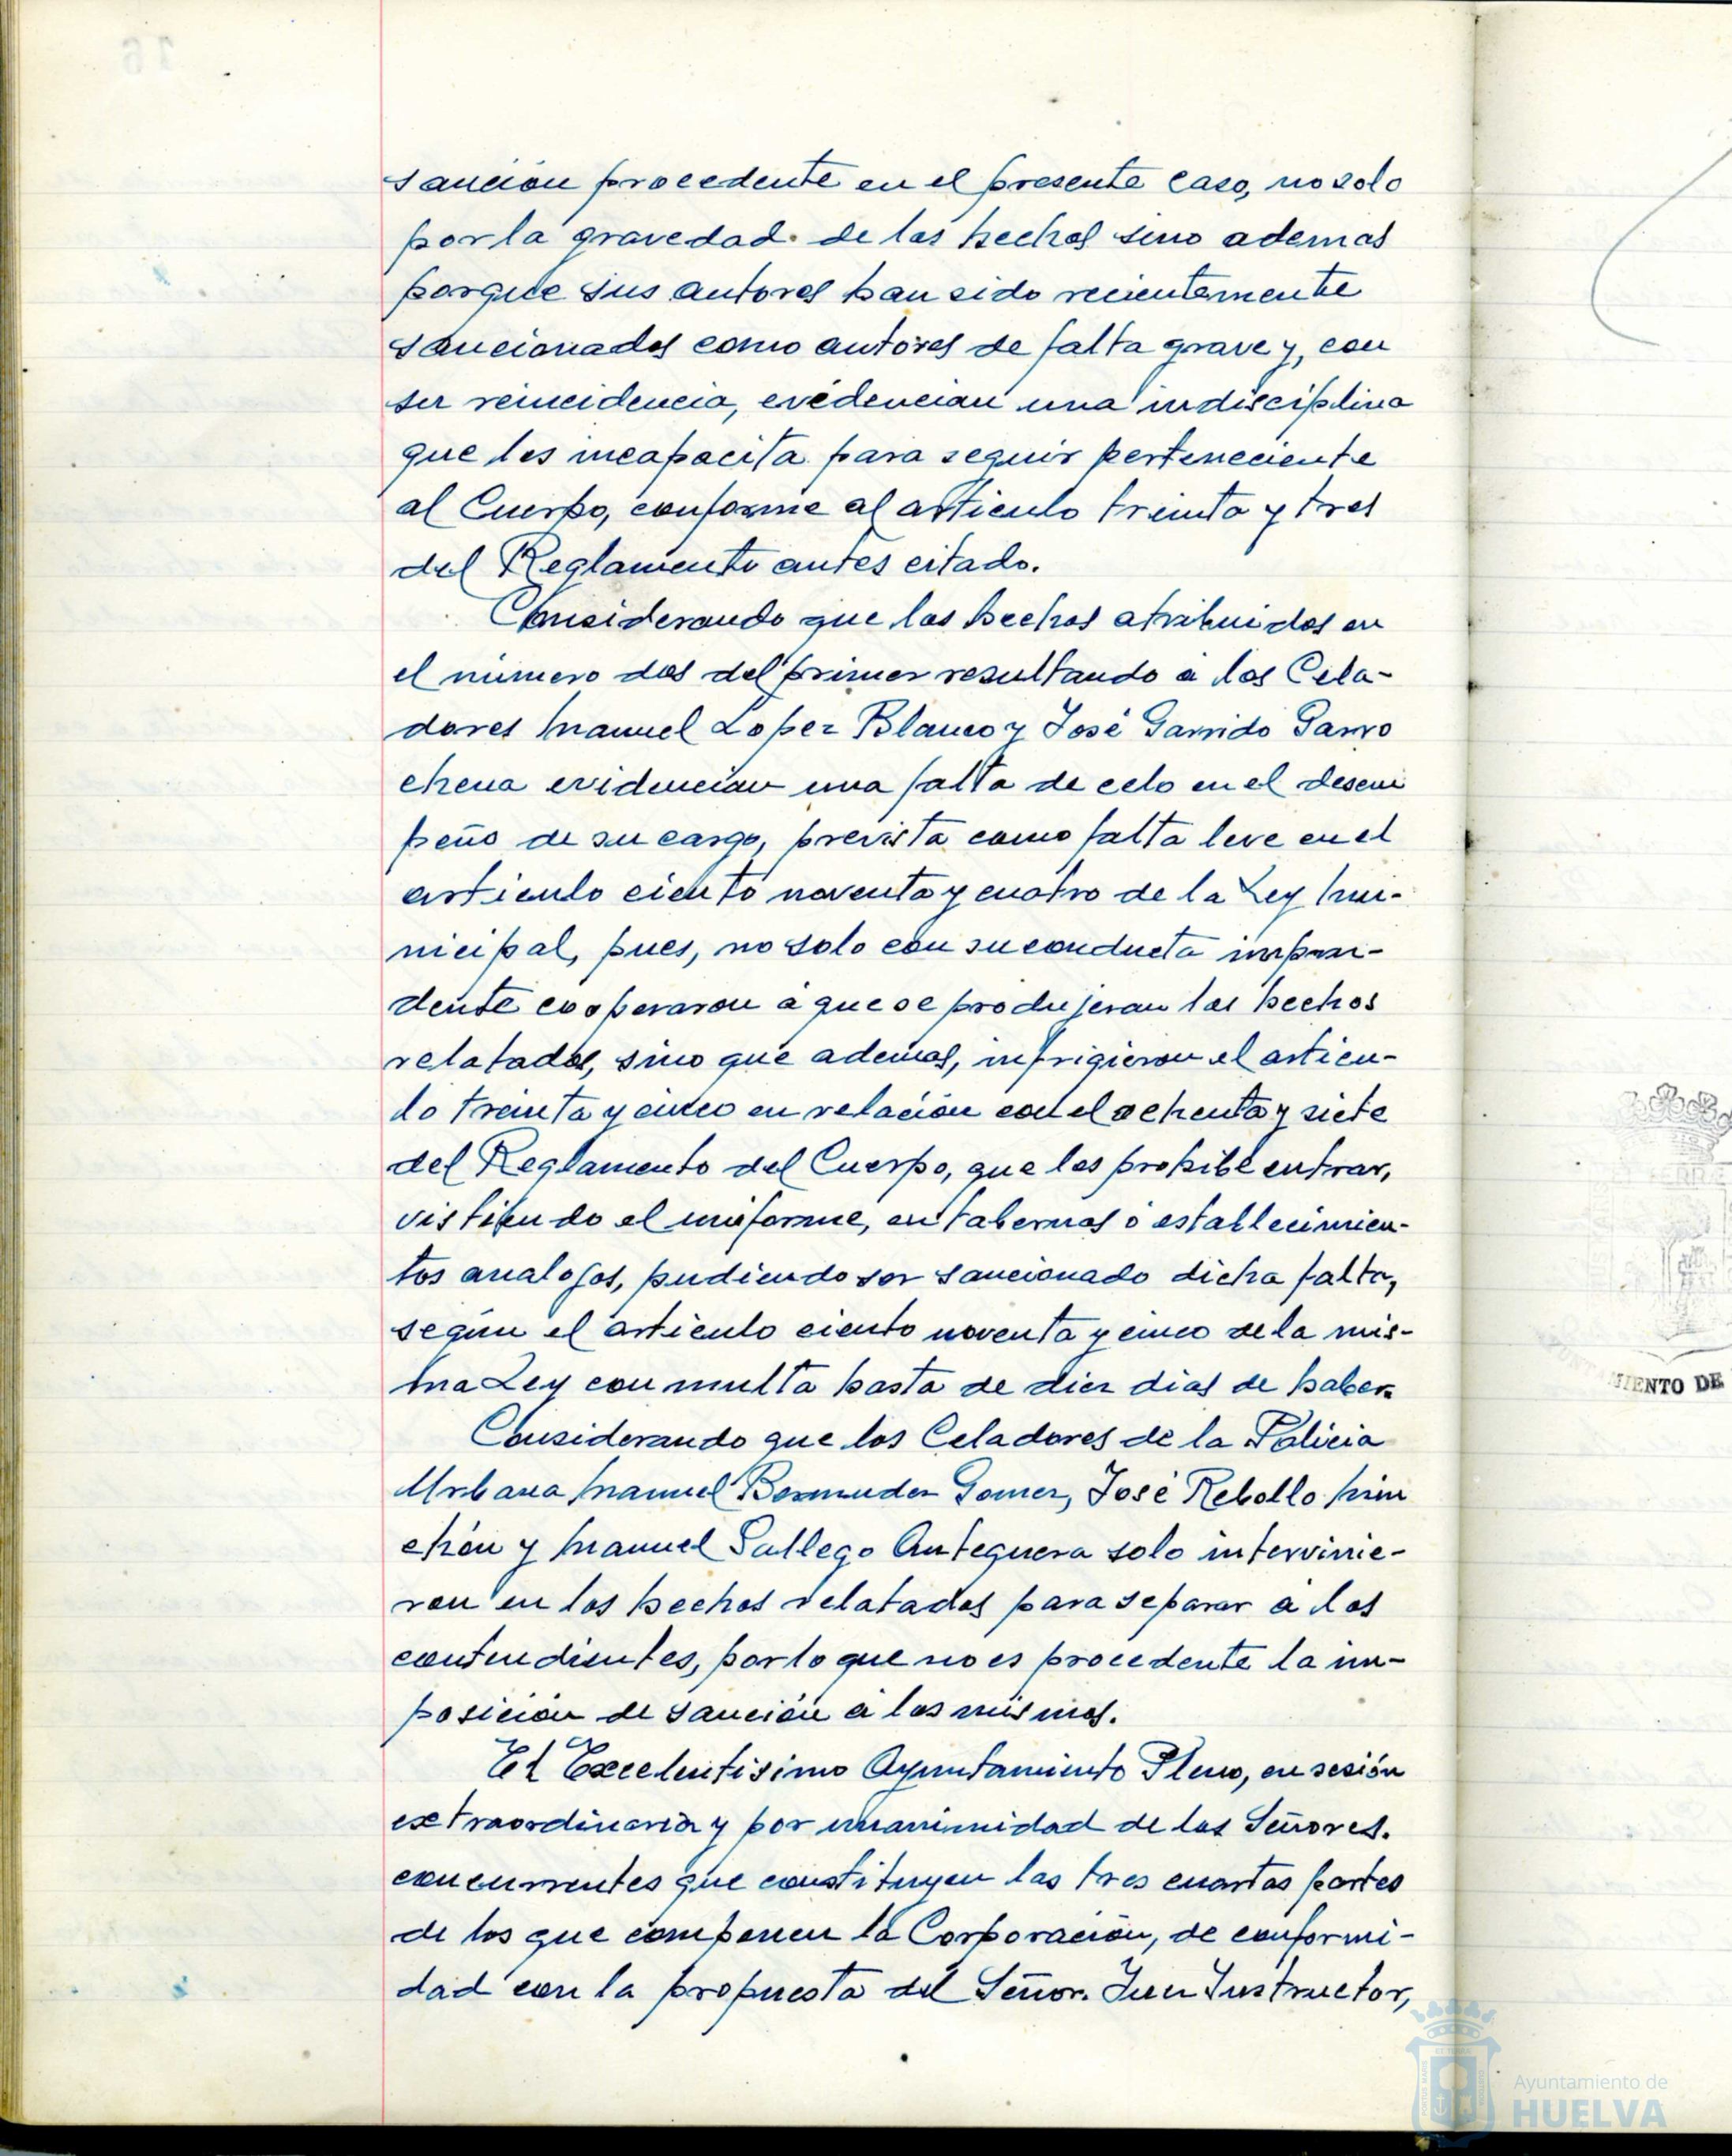 sanción procedente en el presente caso, no solo
por la gravedad de los hechos sino ademas
porque sus autores han sido recientemente
sancionados como autores de falta grave y, con
su reincidencia, evidencian una indisciplina
que les incapacita para seguir perteneciente
al Cuerpo, conforme al articulo treinta y tres
del Reglamento antes citado.
Considerando que los hechos atribuidos en
el número dos del primer resultando a los Cela-
dores Manuel Lopez Blanco y José Garrido Garro
chena evidencian una falta de celo en el desem
peño de su cargo, prevista como falta leve en el
articulo ciento noventa y cuatro de la Ley Mu-
nicipal, pues, no solo con su conducta impru-
dente cooperaron a que se produjeran los hechos
relatados, sino que ademas, infrigieron el articu-
lo treinta y cinco en relación con el ochenta y siete
del Reglamento del Cuerpo, que les prohibe entrar,
vistiendo el uniforme, en tabernas o establecimien-
tos analogos, pudiendo ser sancionado dicha falta,
según el articulo ciento noventa y cinco de la mis-
ma Ley con multa hasta de diez dias de haber.
Considerando que los Celadores de la Policia
Urbana Manuel Bermudez Gomez, José Rebollo Min
chón y Manuel Gallego Antequera solo intervinie-
ron en los hechos relatados para separar a los
contendientes, por lo que no es procedente la im-
posición de sanción a los mismos.
El Excelentisimo Ayuntamiento Pleno, en sesión
extraordinaria y por unanimidad de los Señores.
concurrentes que constituyen las tres cuartas partes
de los que componen la Corporación, de conformi-
dad con la propuesta del Señor. Juez Instructor,
MIENTO DE
Ayuntamiento de
HUELVA